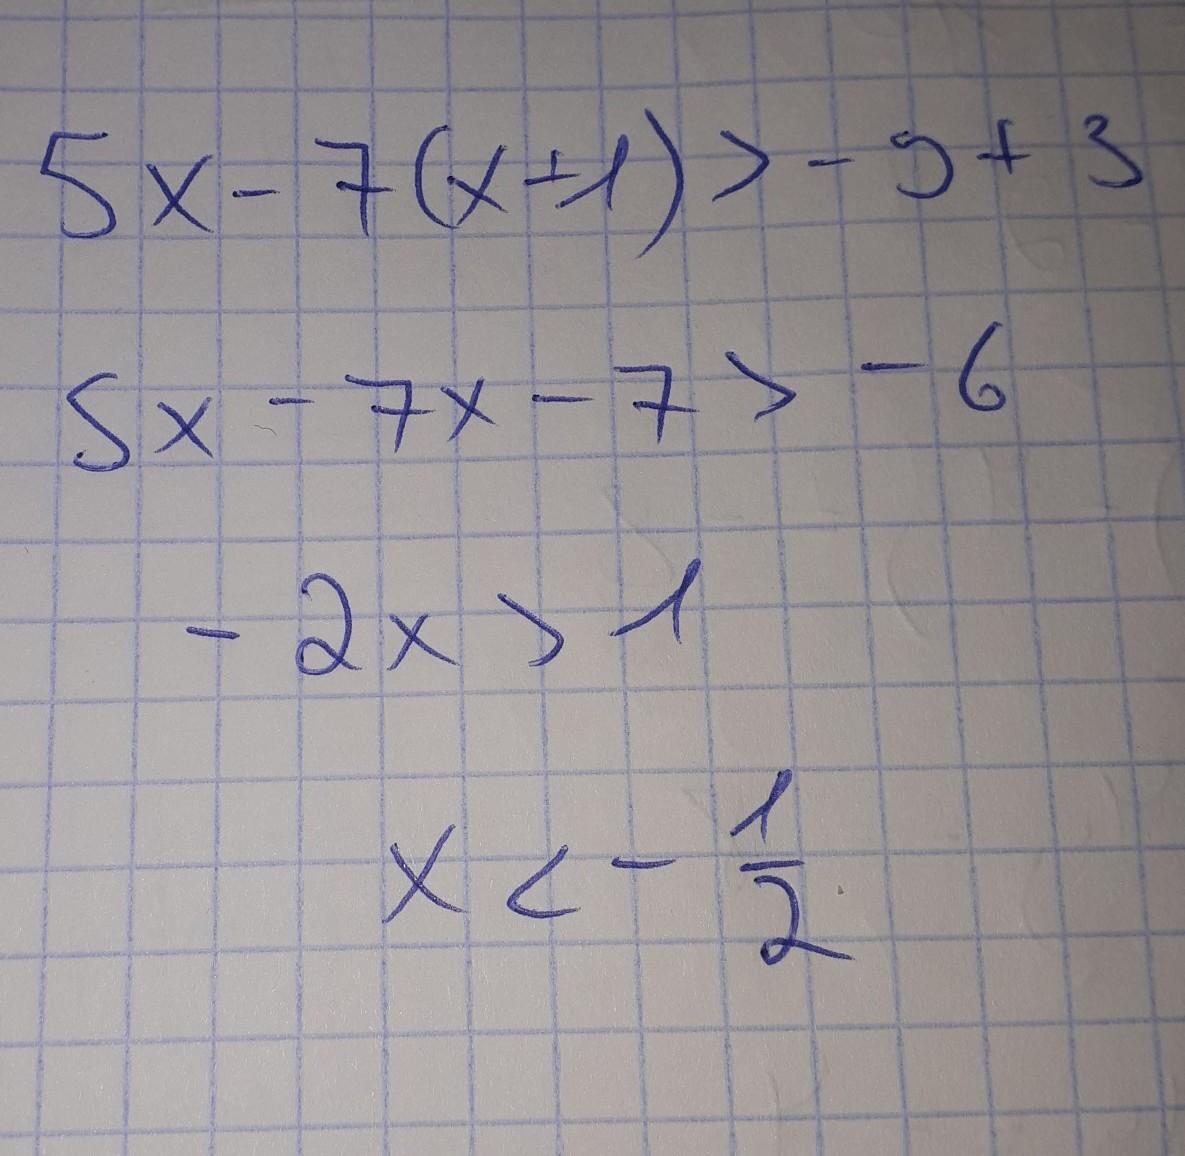 5x - 7(x+1) > - 9 + 3
5x - 7x - 7 > - 6
- 2x > 1
x < - 1/2